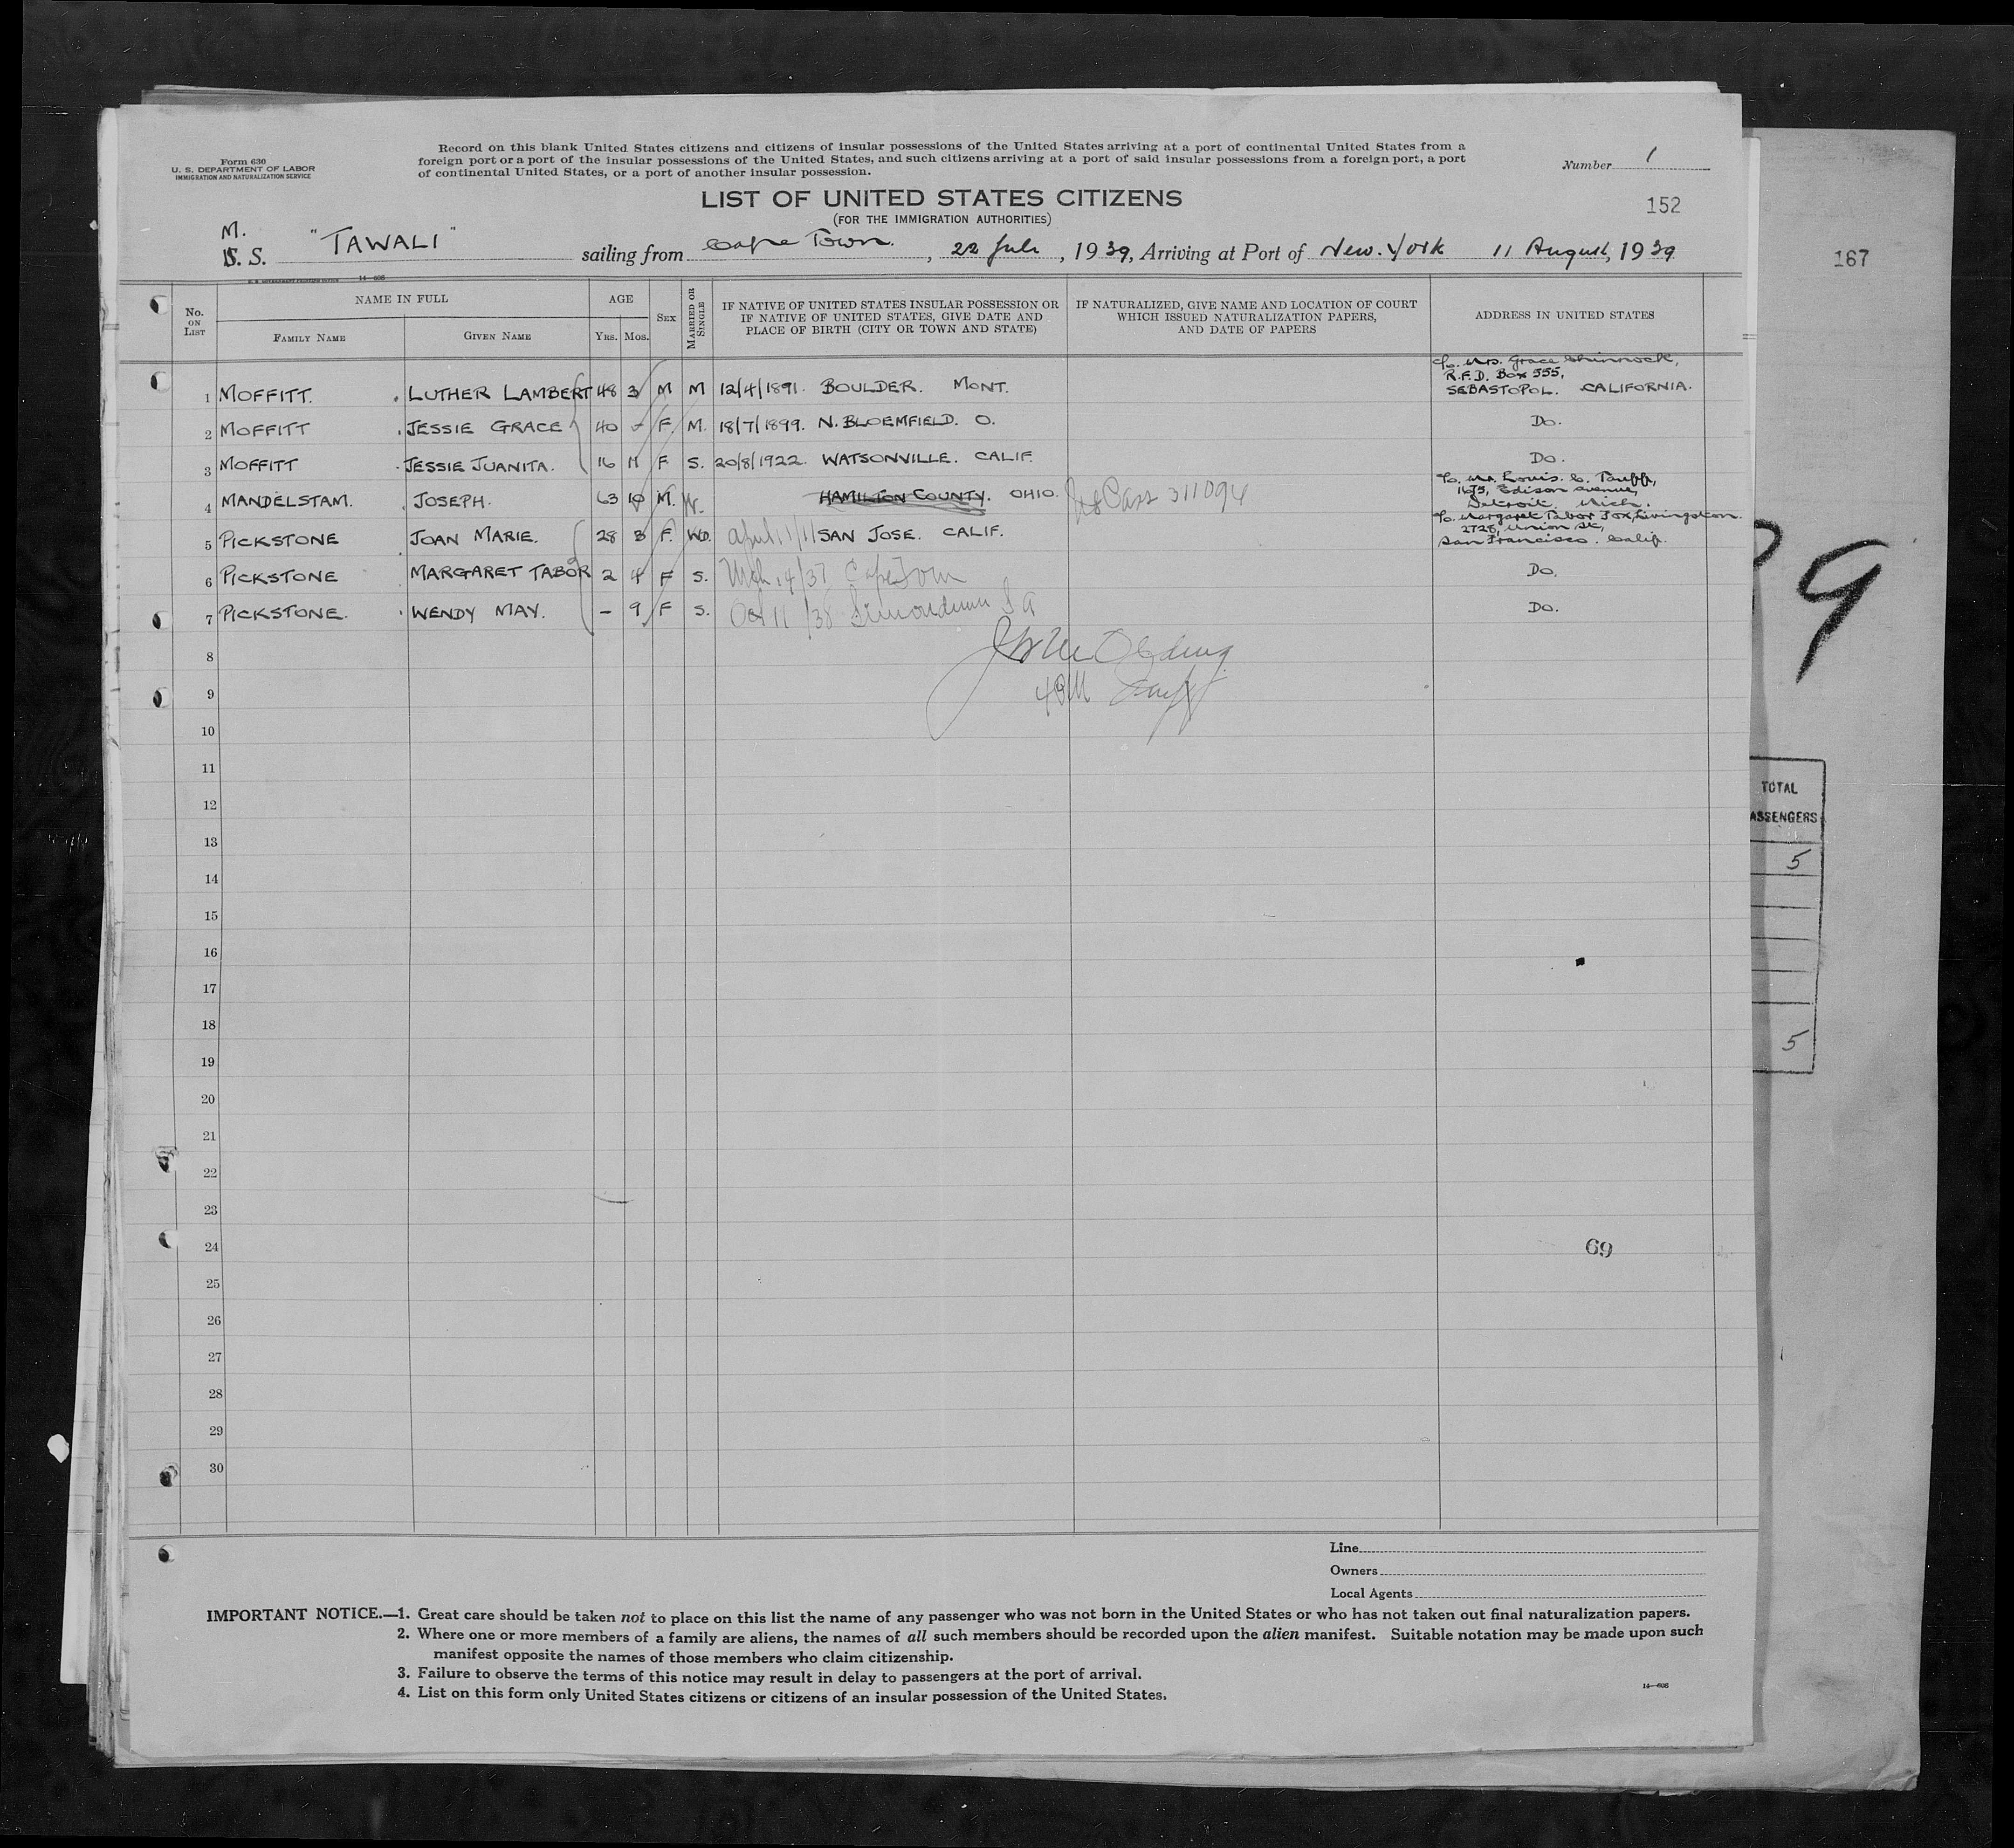 Form 630
U. S. DEPARTMENT OF LABOR
IMMIGRATION AND NATURALIZATION SERVICE
Record on this blank United States citizens and citizens of insular possessions of the United States arriving at a port of continental United States from a
foreign port or a port of the insular possessions of the United States, and such citizens arriving at a port of said insular possessions from a foreign port, a port
of continental United States, or a port of another insular possession.
Number 1
LIST OF UNITED STATES CITIZENS
(FOR THE IMMIGRATION AUTHORITIES)
152
M.
S. S. "TAWALI" sailing from Cape Town. , 22 July , 1939, Arriving at Port of New York 11 August, 1939
167
No. ON LIST
NAME IN FULL
FAMILY NAME
GIVEN NAME
AGE
YRS. MOS.
SEX
MARRIED OR SINGLE
IF NATIVE OF UNITED STATES INSULAR POSSESSION OR
IF NATIVE OF UNITED STATES, GIVE DATE AND
PLACE OF BIRTH (CITY OR TOWN AND STATE)
IF NATURALIZED, GIVE NAME AND LOCATION OF COURT
WHICH ISSUED NATURALIZATION PAPERS,
AND DATE OF PAPERS
ADDRESS IN UNITED STATES
1 MOFFITT. LUTHER LAMBERT 48 3 M M 12/4/1891. BOULDER. MONT. c/o. Mrs. Grace Chinnock,
R.F.D. Box 555,
SEBASTOPOL. CALIFORNIA.
2 MOFFITT JESSIE GRACE 40 - F. M. 18/7/1899. N. BLOEMFIELD. O. Do.
3 MOFFITT JESSIE JUANITA. 16 11 F S. 20/8/1922. WATSONVILLE. CALIF. Do.
4 MANDELSTAM. JOSEPH. 63 10 M. HAMILTON COUNTY. OHIO. 311094 c/o. Mr. Louis. C.
1675, Edison avenue,
Detroit. Mich.
5 PICKSTONE JOAN MARIE. 28 3 F. WD. April 1/11 SAN JOSE. CALIF. c/o. Margaret Tabor Fox Livingston.
2728, Union St,
San Francisco. Calif.
6 PICKSTONE MARGARET TABOR 2 4 F S. Mch. 4/37 Cape Town Do.
7 PICKSTONE. WENDY MAY. - 9 F S. Oct 11/38 S A Do.
8
9
10
11
12
13
14
15
16
17
18
19
20
21
22
23
24
25
26
27
28
29
30
69
9
TOTAL
ASSENGERS
5
5
Line
Owners
Local Agents
IMPORTANT NOTICE.—1. Great care should be taken not to place on this list the name of any passenger who was not born in the United States or who has not taken out final naturalization papers.
2. Where one or more members of a family are aliens, the names of all such members should be recorded upon the alien manifest. Suitable notation may be made upon such
manifest opposite the names of those members who claim citizenship.
3. Failure to observe the terms of this notice may result in delay to passengers at the port of arrival.
4. List on this form only United States citizens or citizens of an insular possession of the United States.
14—608